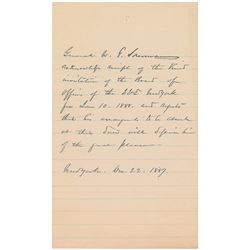 General W. T. Sherman
acknowledges receipt of the kind
invitation of the Board of
Officers of the 22d New York
for Jan 10. 1888. and regrets
that his arrangements to
at this time will
of the great pleasure.
New York. Dec 22. 1887.